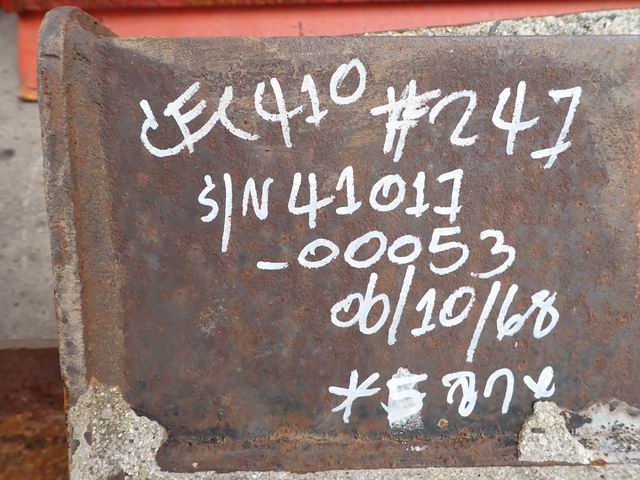 JEC410 #247
S/N 41017
-00053
06/10/68
*5 ฐาน